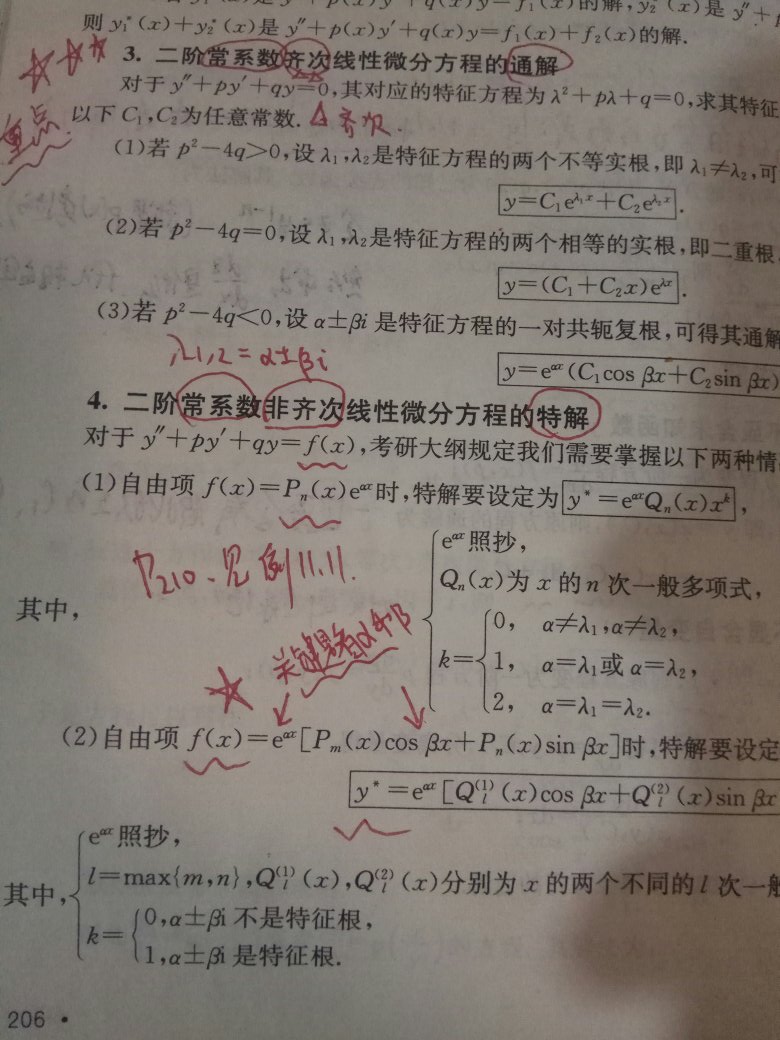 y″+p(x)y′+q(x)y=f₁(x)的解,y₂*(x)是y″+p
则 y₁*(x)+y₂*(x)是 y″+p(x)y′+q(x)y=f₁(x)+f₂(x)的解.
3. 二阶常系数齐次线性微分方程的通解
对于 y″+py′+qy=0,其对应的特征方程为 λ²+pλ+q=0,求其特征
重点
以下 C₁,C₂为任意常数. Δ齐次.
(1)若 p²-4q>0,设 λ₁,λ₂是特征方程的两个不等实根,即 λ₁≠λ₂,可
y=C₁e^{λ₁x}+C₂e^{λ₂x}.
(2)若 p²-4q=0,设 λ₁,λ₂是特征方程的两个相等的实根,即二重根
y=(C₁+C₂x)e^{λx}.
(3)若 p²-4q<0,设 α±βi 是特征方程的一对共轭复根,可得其通解
λ1,2=α±βi
y=e^{αx}(C₁cos βx+C₂sin βx)
4. 二阶常系数非齐次线性微分方程的特解
对于 y″+py′+qy=f(x),考研大纲规定我们需要掌握以下两种情
(1)自由项 f(x)=Pₙ(x)e^{αx}时,特解要设定为 y*=e^{αx}Qₙ(x)xᵏ,
e^{αx}照抄,
P210、见例11.11.
Qₙ(x)为 x 的 n 次一般多项式,
其中,
k=
0, α≠λ₁,α≠λ₂,
1, α=λ₁或 α=λ₂,
2, α=λ₁=λ₂.
关键是看α和β
(2)自由项 f(x)=e^{αx}[Pₘ(x)cos βx+Pₙ(x)sin βx]时,特解要设定
y*=e^{αx}[Q_l^{(1)}(x)cos βx+Q_l^{(2)}(x)sin βx
e^{αx}照抄,
其中,
l=max{m,n},Q_l^{(1)}(x),Q_l^{(2)}(x)分别为 x 的两个不同的 l 次一般
k=
0,α±βi 不是特征根,
1,α±βi 是特征根.
206 •